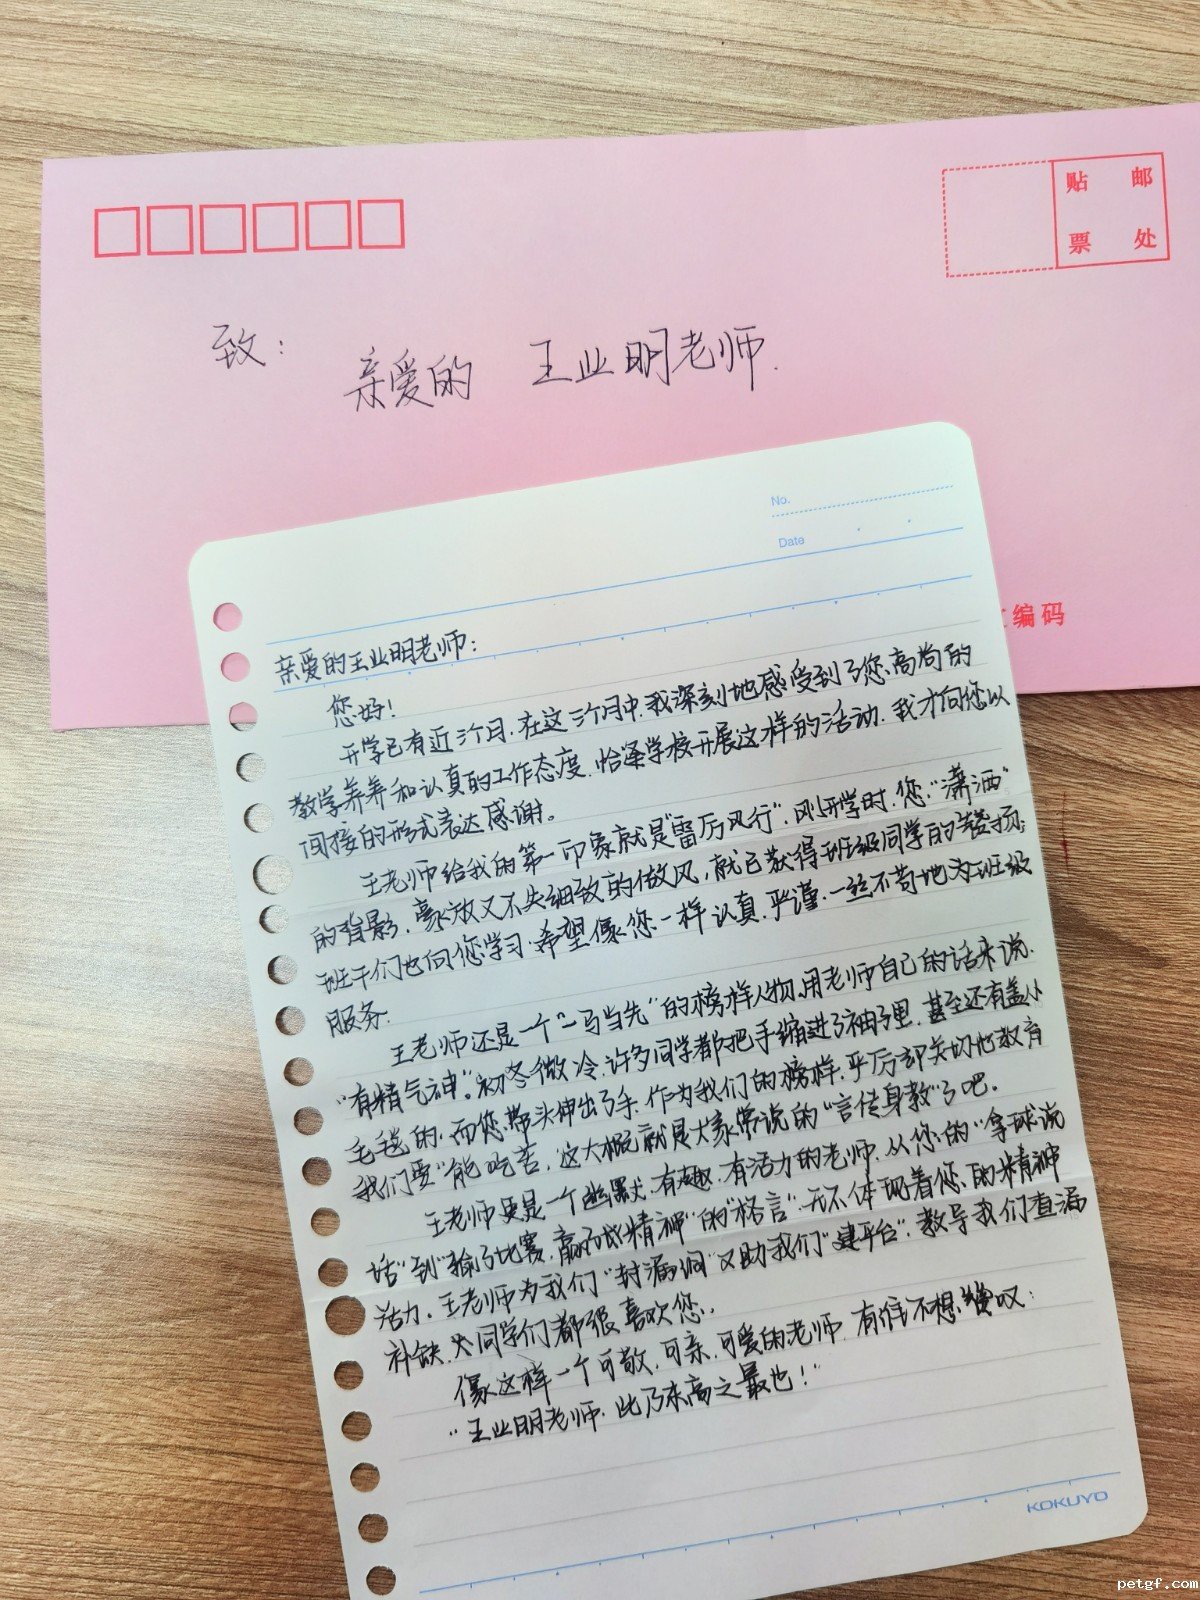 贴 邮
票 处
致:
亲爱的 王业明老师.
编码
No.
Date
亲爱的王业明老师:
您好!
开学已有近三个月.在这三个月中,我深刻地感受到了您高尚的
教学养养和认真的工作态度.恰逢学校开展这样的活动.我才向您以
间接的形式表达感谢。
王老师给我的第一印象就是“雷厉风行”.刚开学时.您“潇洒”
的背影.豪放又不失细致的做风,就已获得班级同学的赞扬;
班干们也向您学习.希望像您一样认真.严谨.一丝不苟地为班级
服务.
王老师还是一个“一马当先”的榜样人物.用老师自己的话来说.
“有精气神”。初冬微冷.许多同学都把手缩进了袖子里.甚至还有盖小
毛毯的.而您带头伸出了手.作为我们的榜样.严厉却关切地教育
我们要“能吃苦.这大概就是大家常说的“言传身教”了吧.
王老师更是一个幽默.有趣.有活力的老师.从您的“拿球说
话”到“输了比赛,赢了精神”的“格言”.无不体现着您的精神
活力.王老师为我们“封漏洞”又助我们“建平台”.教导我们查漏
补缺.大同学们都很喜欢您.
像这样一个可敬.可亲.可爱的老师.有谁不想赞叹:
“王业明老师.此乃未高之最也!”
KOKUYO
petgf.com